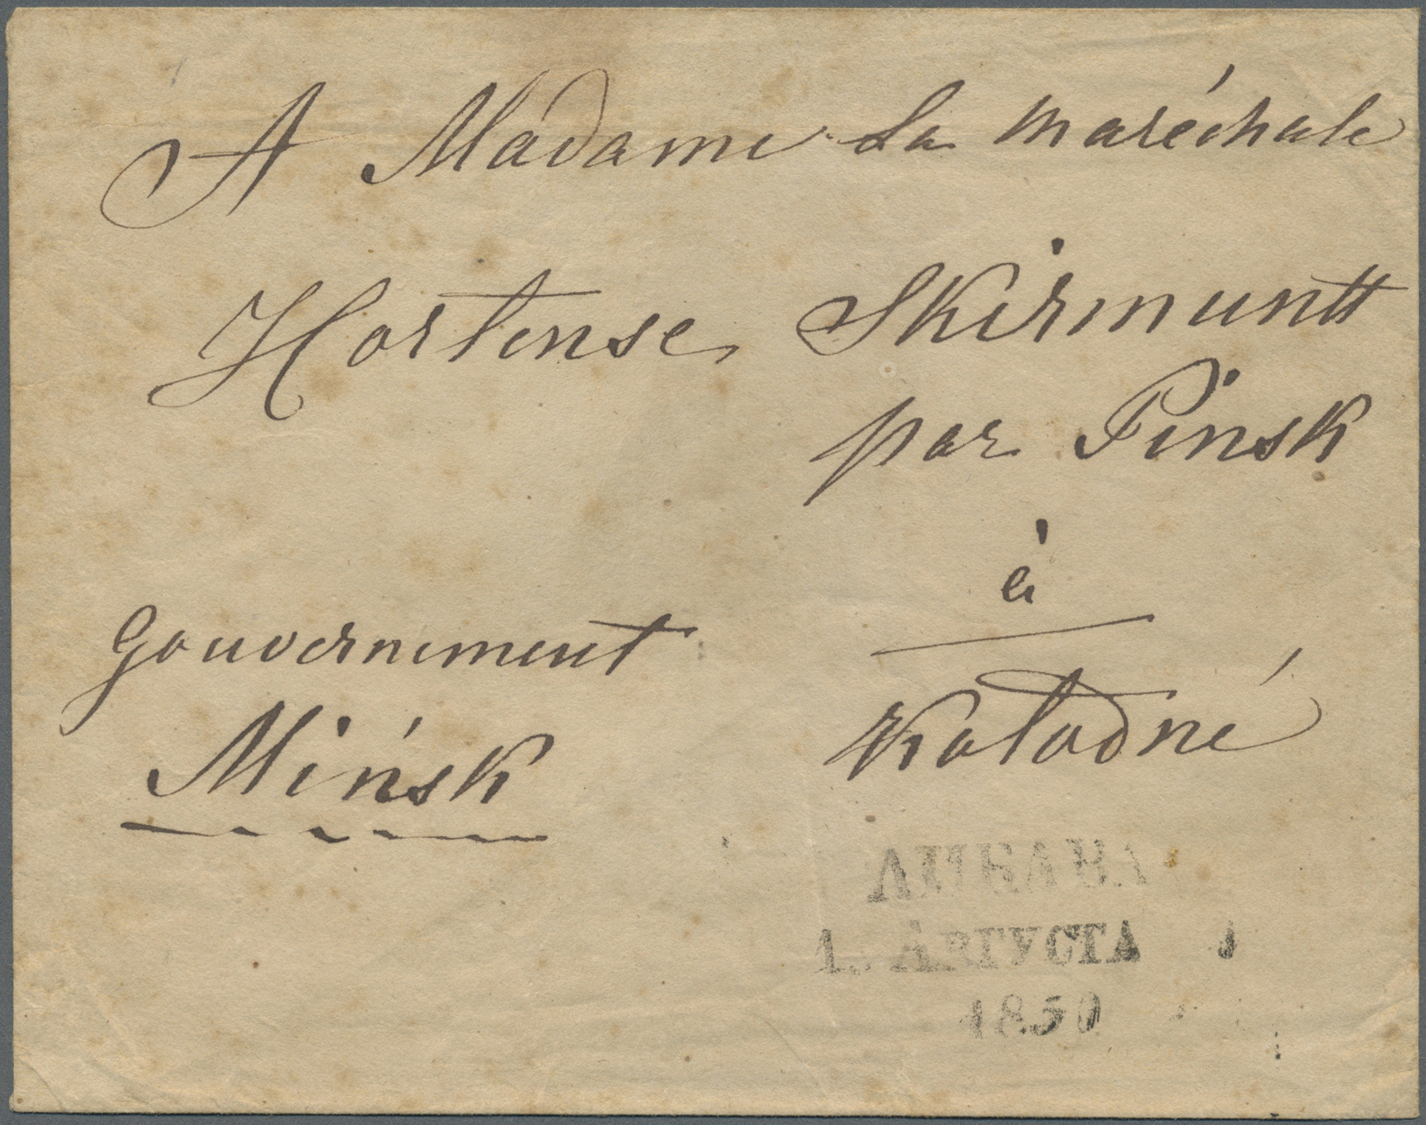 A Madame La Maréchale
Hortense Skirmuntt
par Pinsk
à
Gouvernement
Kołodné
Mińsk
ЛИБАВА
1. АВГУСТА
1850